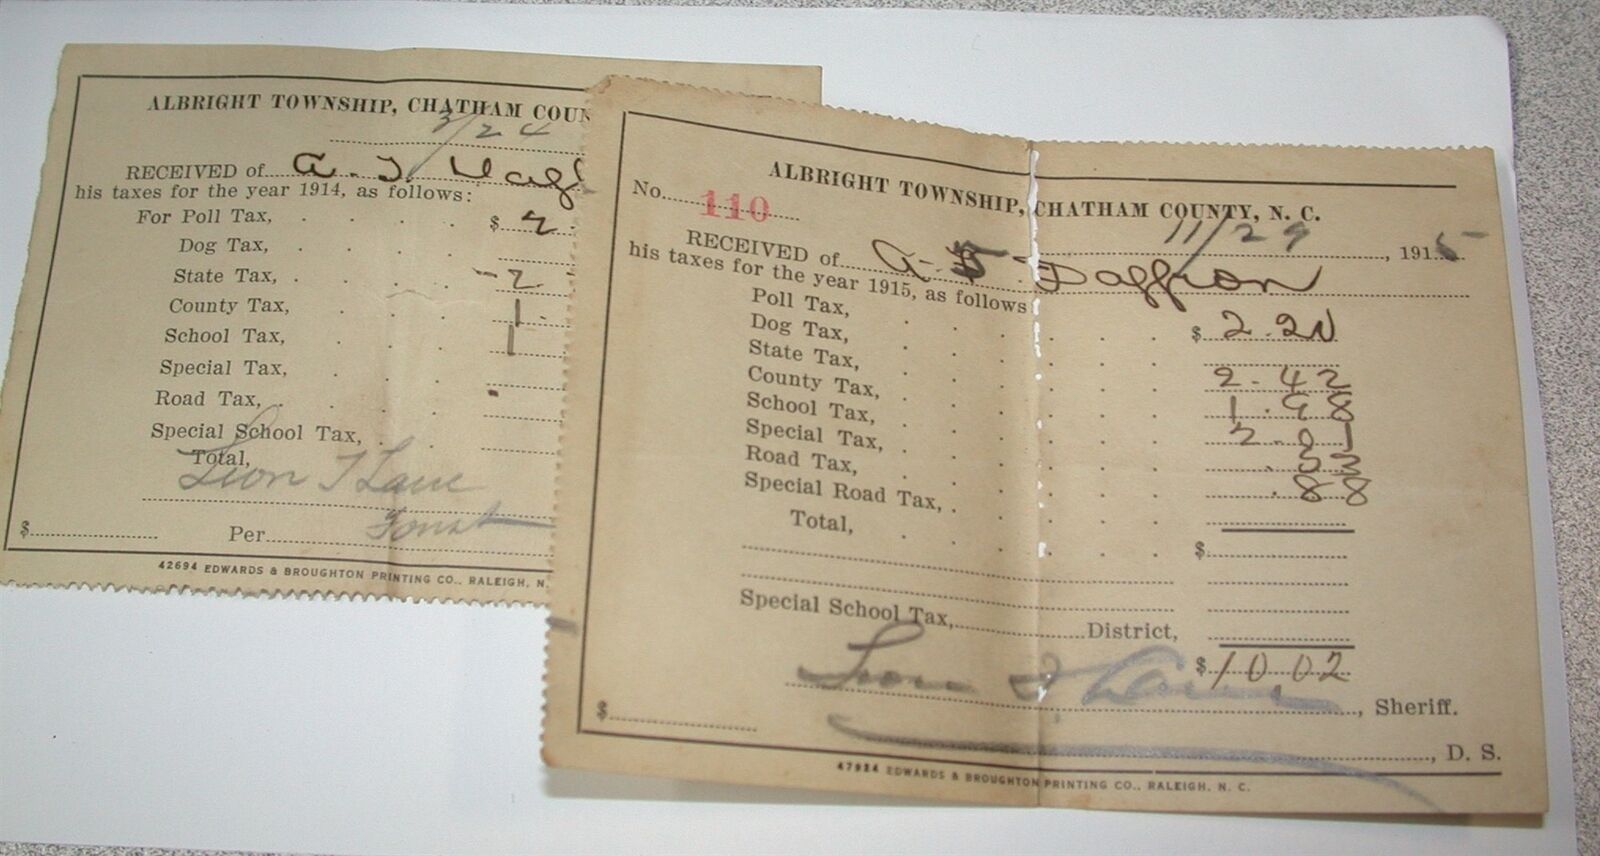 ALBRIGHT TOWNSHIP, CHATHAM COUN
3/24
RECEIVED of A. T.
his taxes for the year 1914, as follows:
For Poll Tax, $ 2.
Dog Tax,
State Tax, 2
County Tax, 1.
School Tax, 1
Special Tax,
Road Tax,
Special School Tax,
Total,
Leon T Lane
$ Per
42694 EDWARDS & BROUGHTON PRINTING CO., RALEIGH, N.
ALBRIGHT TOWNSHIP, CHATHAM COUNTY, N. C.
No. 110
11/29, 1915
RECEIVED of A. Daffron
his taxes for the year 1915, as follows
Poll Tax, $ 2.20
Dog Tax,
State Tax, 2.42
County Tax, 1.98
School Tax, 2.21
Special Tax, .33
Road Tax, .88
Special Road Tax,
Total, $
Special School Tax, District,
$ 10.02
Leon T. Lane, Sheriff.
$
, D. S.
47924 EDWARDS & BROUGHTON PRINTING CO., RALEIGH, N. C.